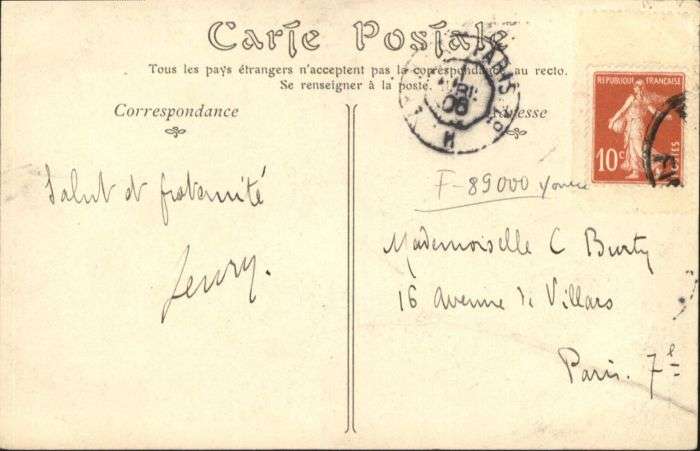 Carte Postale
Tous les pays étrangers n'acceptent pas la correspondance au recto.
Se renseigner à la poste.
Correspondance
Adresse
PARIS
06
REPUBLIQUE FRANÇAISE
10c
POSTES
F-89000 Yonne
Salut et fraternité
Mademoiselle C Burty
16 avenue de Villars
Paris. 7e